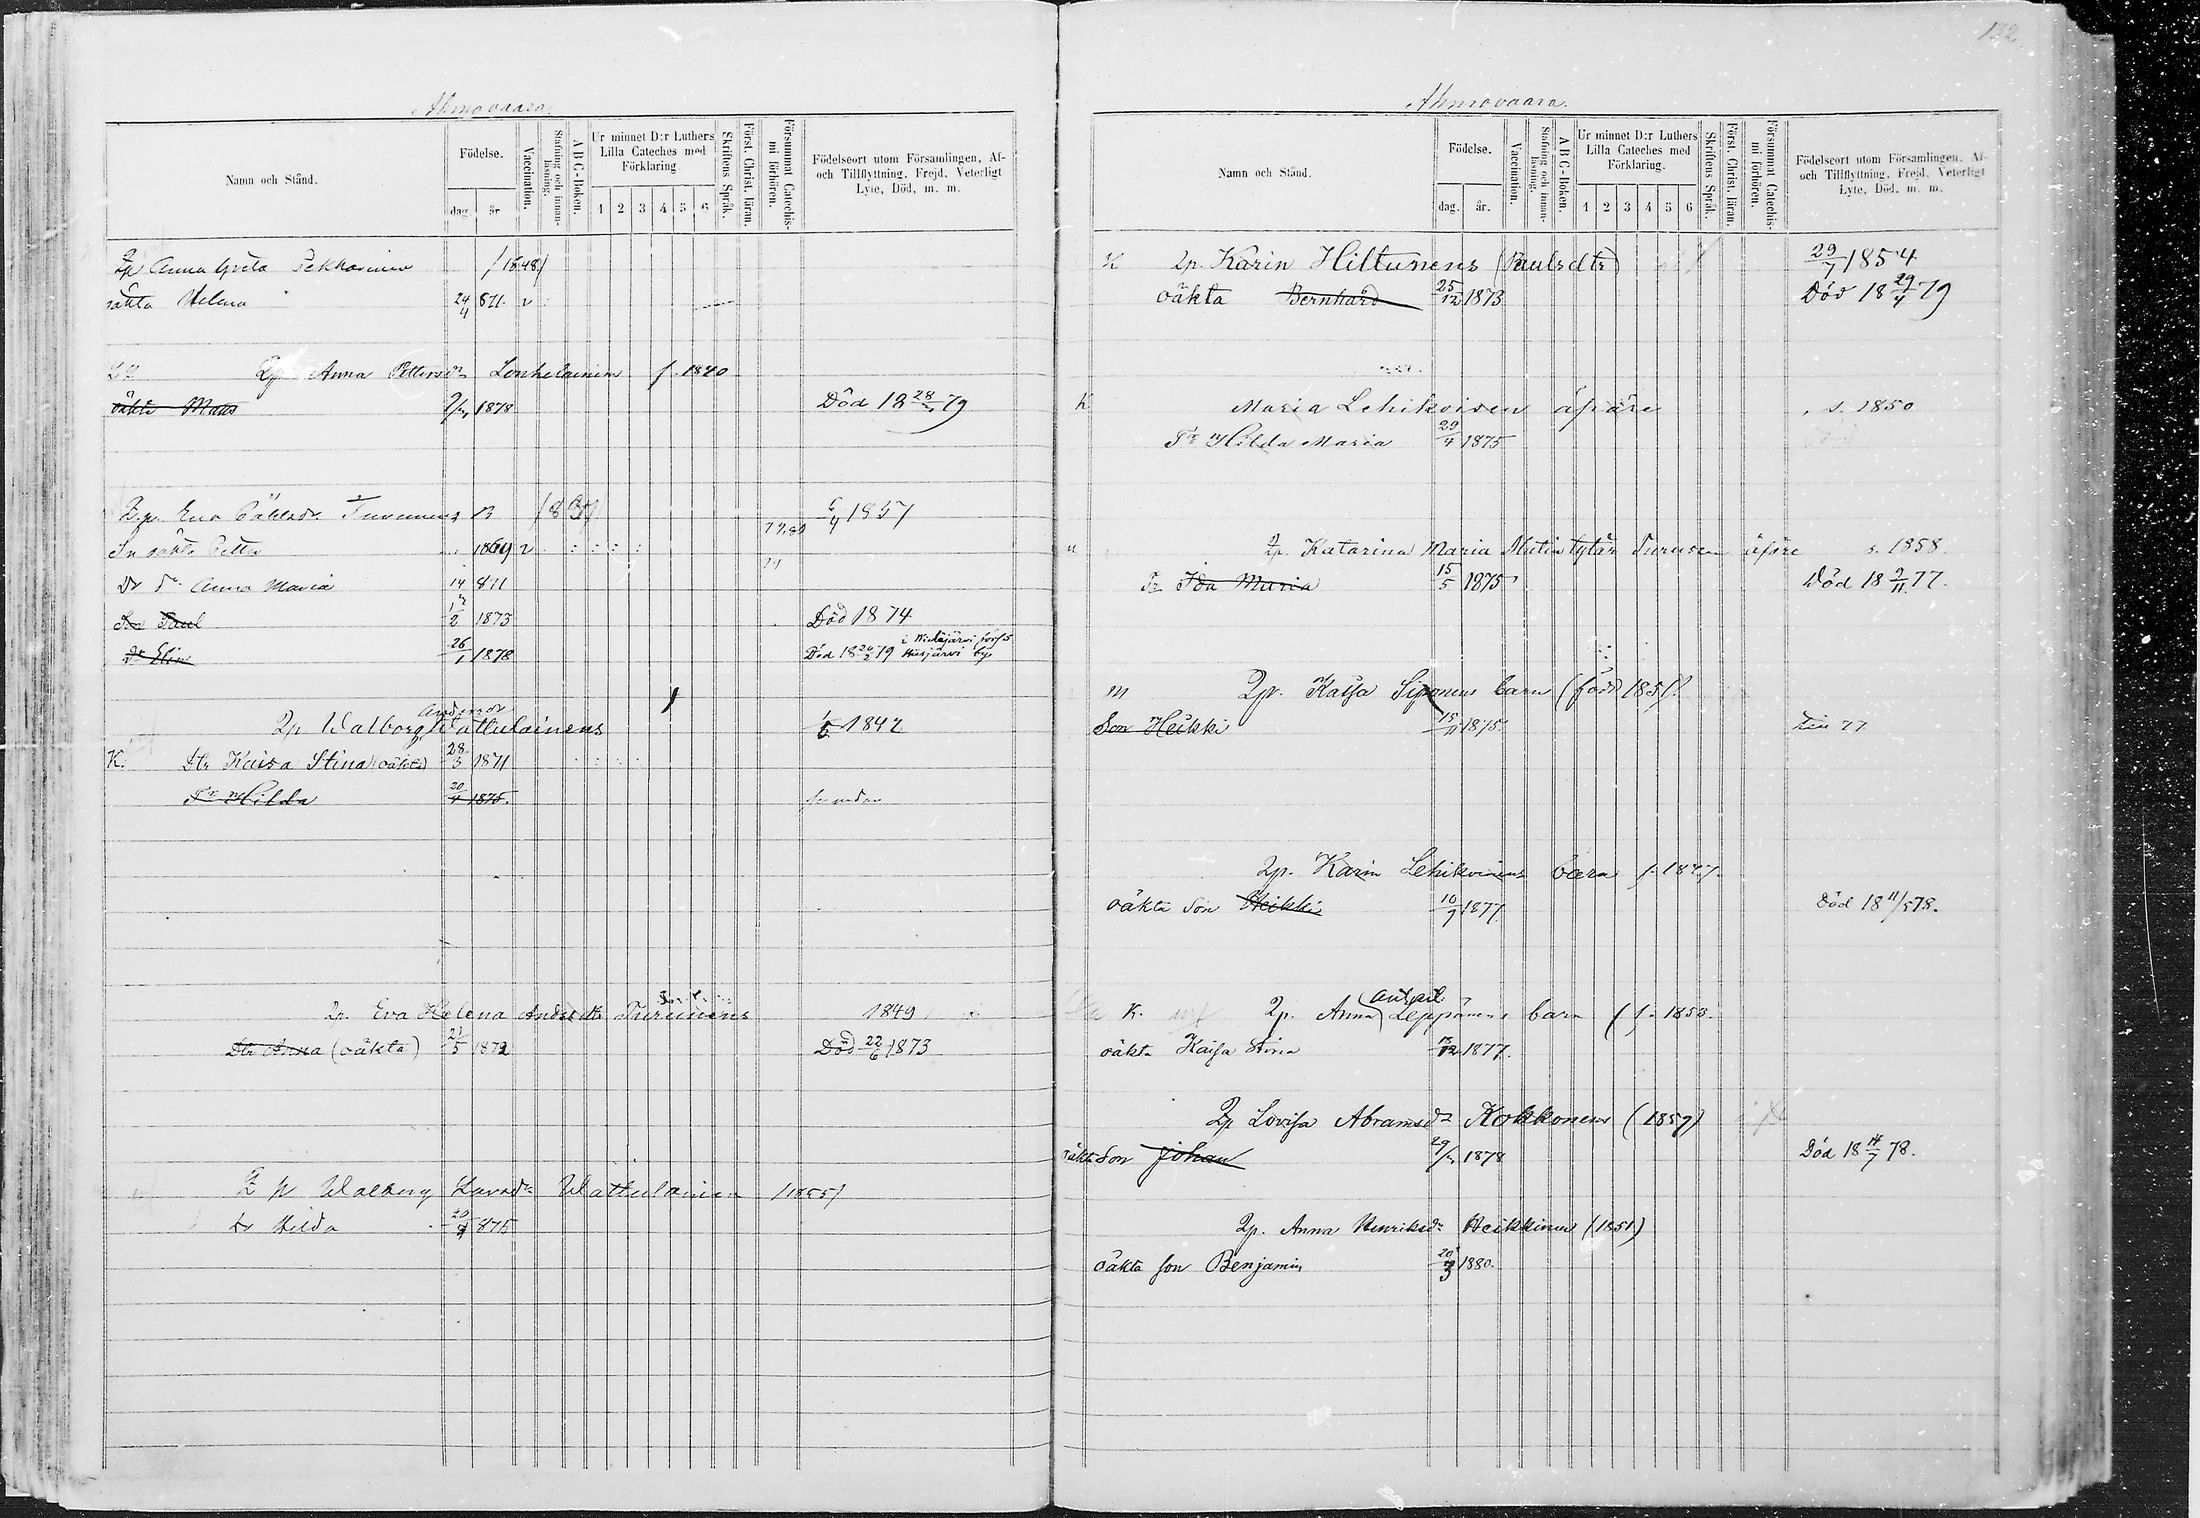 Ahmovaara
Namn och Stånd.
Födelse.
dag.
år.
Vaccination.
Stafning och innanläsning.
A B C-Boken.
Ur minnet D:r Luthers Lilla Cateches med Förklaring
1 2 3 4 5 6
Skriftens Språk.
Först. Christ. läran.
Försummat Catechismi förhören.
Födelseort utom Församlingen, Af- och Tillflyttning, Frejd, Veterligt Lyte, Död, m. m.
Qp Anna Greta (1848)
oäkta Helena 24/4 871 v
Qp Anna Pettersdr f. 1840
oäkta Mans 1878 Död 18 28/ 79
Q.p. Eva 1857
Sn oäkta Petter 1869 v
Dr dr Anna Maria 14 871
Son Paul 2 1873 Död 1874
Dr Elin 26/1 1878 Död 18 79 by
Andersdr
Qp Walborg Wattulainens 1842
K. Dtr Kaisa Stina (oäkta) 28/3 1871
Hilda 20/4 1875.
Qp. Eva Helena Andsdtr Turunens 1849
Dtr Anna (oäkta) 21/5 1872 Död 22/6 1873
Q p Walborg Larsdr Wattulainen (1855)
dr Hilda 20/4 875
132
Ahmovaara.
Namn och Stånd.
Födelse.
dag.
år.
Vaccination.
Stafning och innanläsning.
A B C-Boken.
Ur minnet D:r Luthers Lilla Cateches med Förklaring.
1 2 3 4 5 6
Skriftens Språk.
Först. Christ. läran.
Försummat Catechismi förhören.
Födelseort utom Församlingen. Af- och Tillflyttning. Frejd. Veterligt Lyte, Död. m. m.
K Qp. Karin Hiltunens (Paulsdtr) 29/7 1854
oäkta Bernhard 25/12 1873 Död 18 29/4 79
K Maria Lehikoisen äpäre s. 1850
Hilda Maria 29/4 1875
Qp. Katarina Maria tytär Turusen äpäre s. 1858.
Tr Ida Maria 15/5 1875 Död 18 9/11 77.
m Qp. Kaisa Siponens barn (född 1851).
Son Heikki 15/11 1875. 77
Qp. Karin Lehikoinens barn f. 1847.
oäkta son Heikki 10/9 1877 Död 18 11/5 78.
K. Qp. Anna Leppänens barn (f. 1853.
oäkta Kaisa Stina 12 1877.
Qp Lovisa Abramsdr Kokkonens (1859)
oäkta Son Johan 29/ 1878 Död 18 14/7 78.
Qp. Anna Henriksdr Heikkinen (1851)
oäkta son Benjamin 20/3 1880.